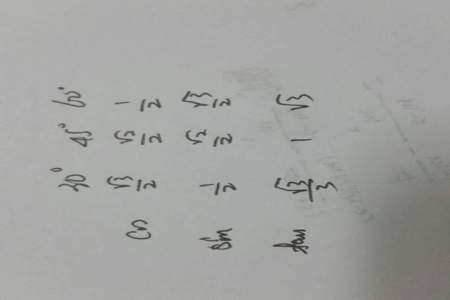 30° 45° 60°
cos √3/2 √2/2 1/2
sin 1/2 √2/2 √3/2
tan √3/3 1 √3